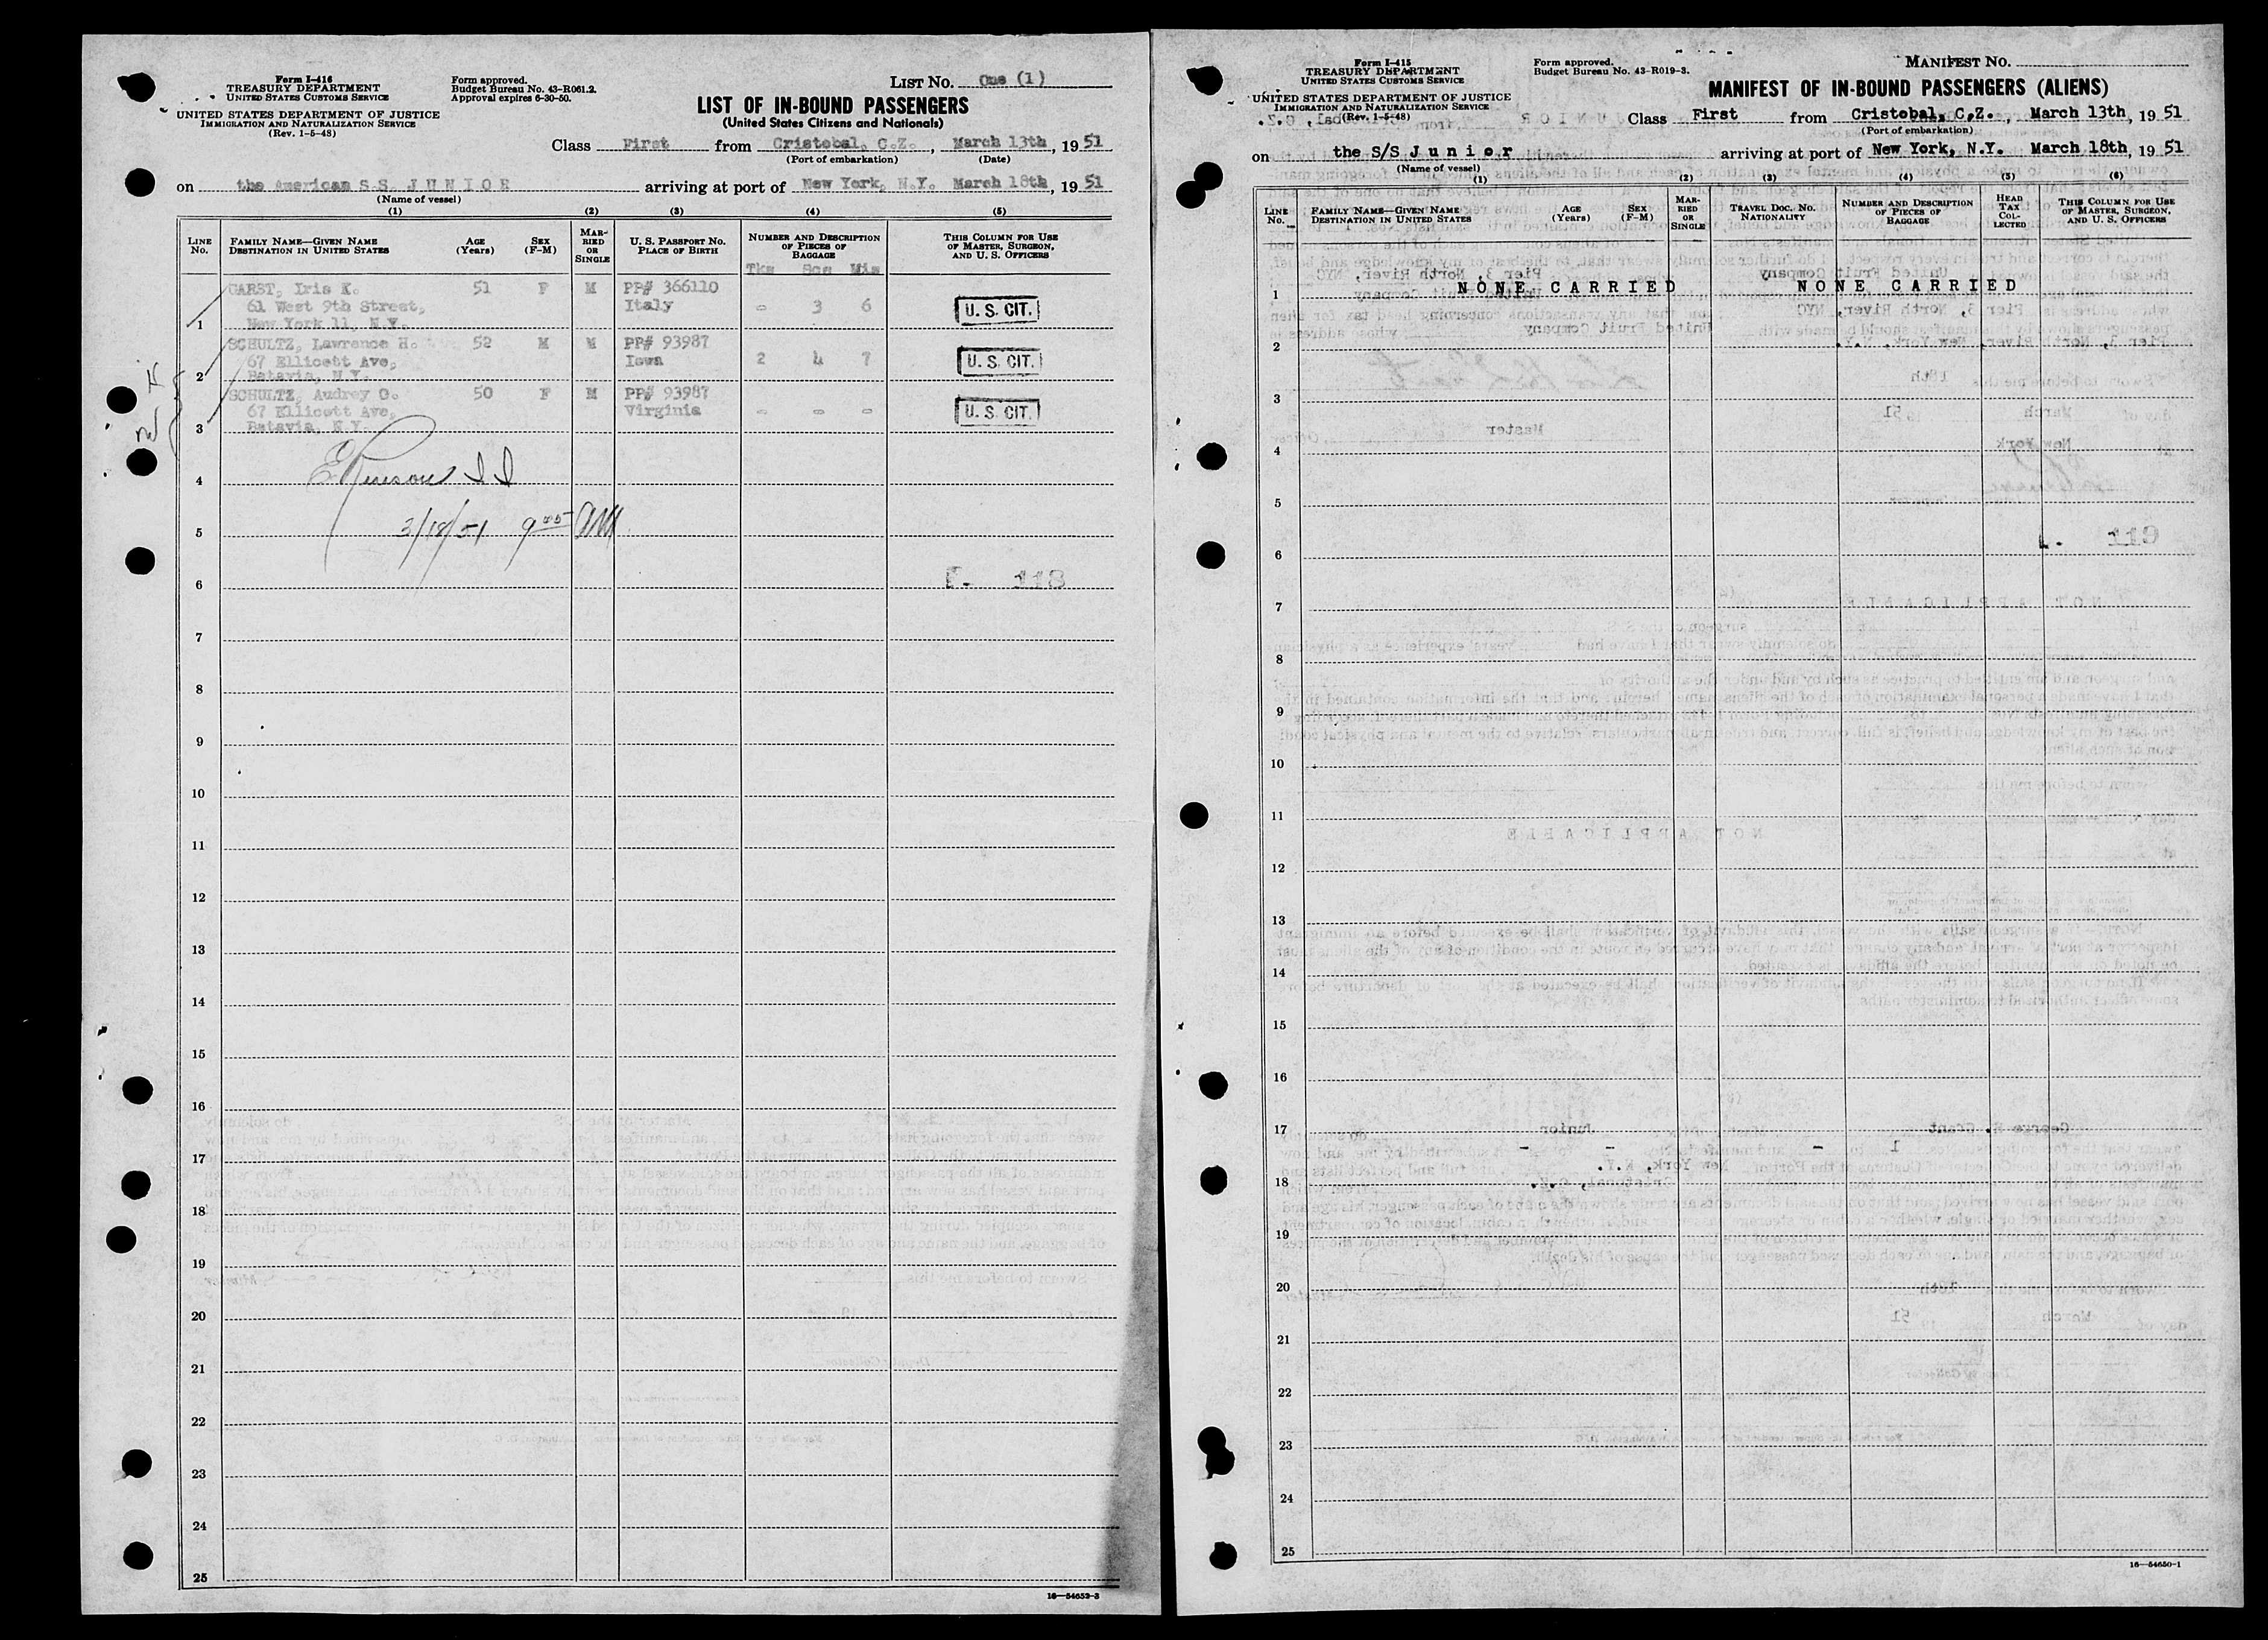 Form I-416
TREASURY DEPARTMENT
UNITED STATES CUSTOMS SERVICE
UNITED STATES DEPARTMENT OF JUSTICE
IMMIGRATION AND NATURALIZATION SERVICE
(Rev. 1-5-48)
Form approved.
Budget Bureau No. 43-R061.2.
Approval expires 6-30-50.
LIST NO. One (1)
LIST OF IN-BOUND PASSENGERS
(United States Citizens and Nationals)
Class First from Cristobal, C.Z., March 13th, 19 51
(Port of embarkation) (Date)
on the American S.S. JUNIOR arriving at port of New York, N.Y. March 18th, 19 51
(Name of vessel)
(1) (2) (3) (4) (5)
LINE No.
FAMILY NAME—GIVEN NAME
DESTINATION IN UNITED STATES
AGE (Years)
SEX (F-M)
MARRIED OR SINGLE
U. S. PASSPORT NO.
PLACE OF BIRTH
NUMBER AND DESCRIPTION OF PIECES OF BAGGAGE
Tks Scs Mis
THIS COLUMN FOR USE OF MASTER, SURGEON, AND U. S. OFFICERS
GARST, Iris K. 51 F M PP# 366110
61 West 9th Street, Italy - 3 6 U. S. CIT.
1 New York 11, N.Y.
SCHULTZ, Lawrence H. 52 M M PP# 93987
67 Ellicott Ave, Iowa 2 4 7 U. S. CIT.
2 Batavia, N.Y.
SCHULTZ, Audrey O. 50 F M PP# 93987
67 Ellicott Ave, Virginia - - - U. S. CIT.
3 Batavia, N.Y.
4
3/18/51 9 05 AM
5
6 118
7
8
9
10
11
12
13
14
15
16
17
18
19
20
21
22
23
24
25
16—54652-3
Form I-415
TREASURY DEPARTMENT
UNITED STATES CUSTOMS SERVICE
UNITED STATES DEPARTMENT OF JUSTICE
IMMIGRATION AND NATURALIZATION SERVICE
(Rev. 1-5-48)
Form approved.
Budget Bureau No. 43-R019-3.
MANIFEST NO.
MANIFEST OF IN-BOUND PASSENGERS (ALIENS)
Class First from Cristobal, C.Z., March 13th, 19 51
(Port of embarkation)
on the S/S Junior arriving at port of New York, N.Y. March 18th, 19 51
(Name of vessel)
(1) (2) (3) (4) (5) (6)
LINE No.
FAMILY NAME—GIVEN NAME
DESTINATION IN UNITED STATES
AGE (Years)
SEX (F-M)
MARRIED OR SINGLE
TRAVEL DOC. NO.
NATIONALITY
NUMBER AND DESCRIPTION OF PIECES OF BAGGAGE
HEAD TAX COLLECTED
THIS COLUMN FOR USE OF MASTER, SURGEON, AND U. S. OFFICERS
1 NONE CARRIED NONE CARRIED
2
3
4
5
6
7
8
9
10
11
12
13
14
15
16
17
18
19
20
21
22
23
24
25
16—54650-1